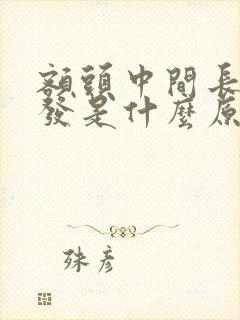 額頭中間長
發是什麼原
殊彥